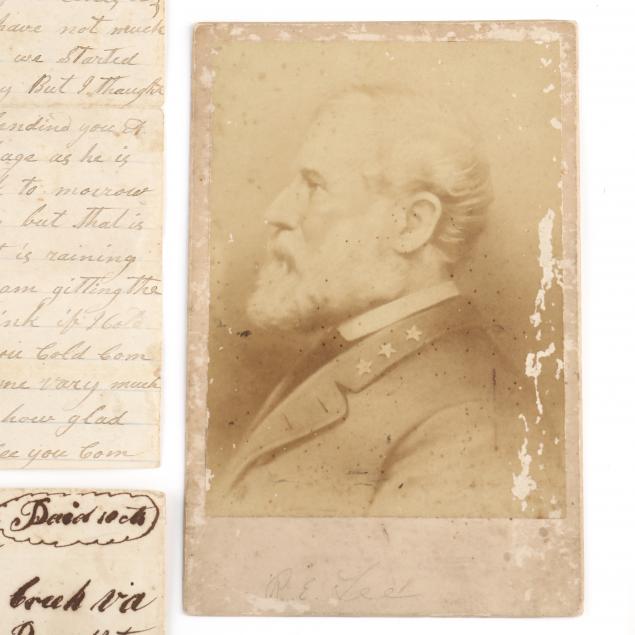 have not much
we Started
But I thaught
sending you A
age as he is
to morrow
but that is
is raining
am gitting the
ink if I Cold
you Cold Com
me vary much
how glad
see you Com
Paid 10 cts
Creek Va
R. E. Lee